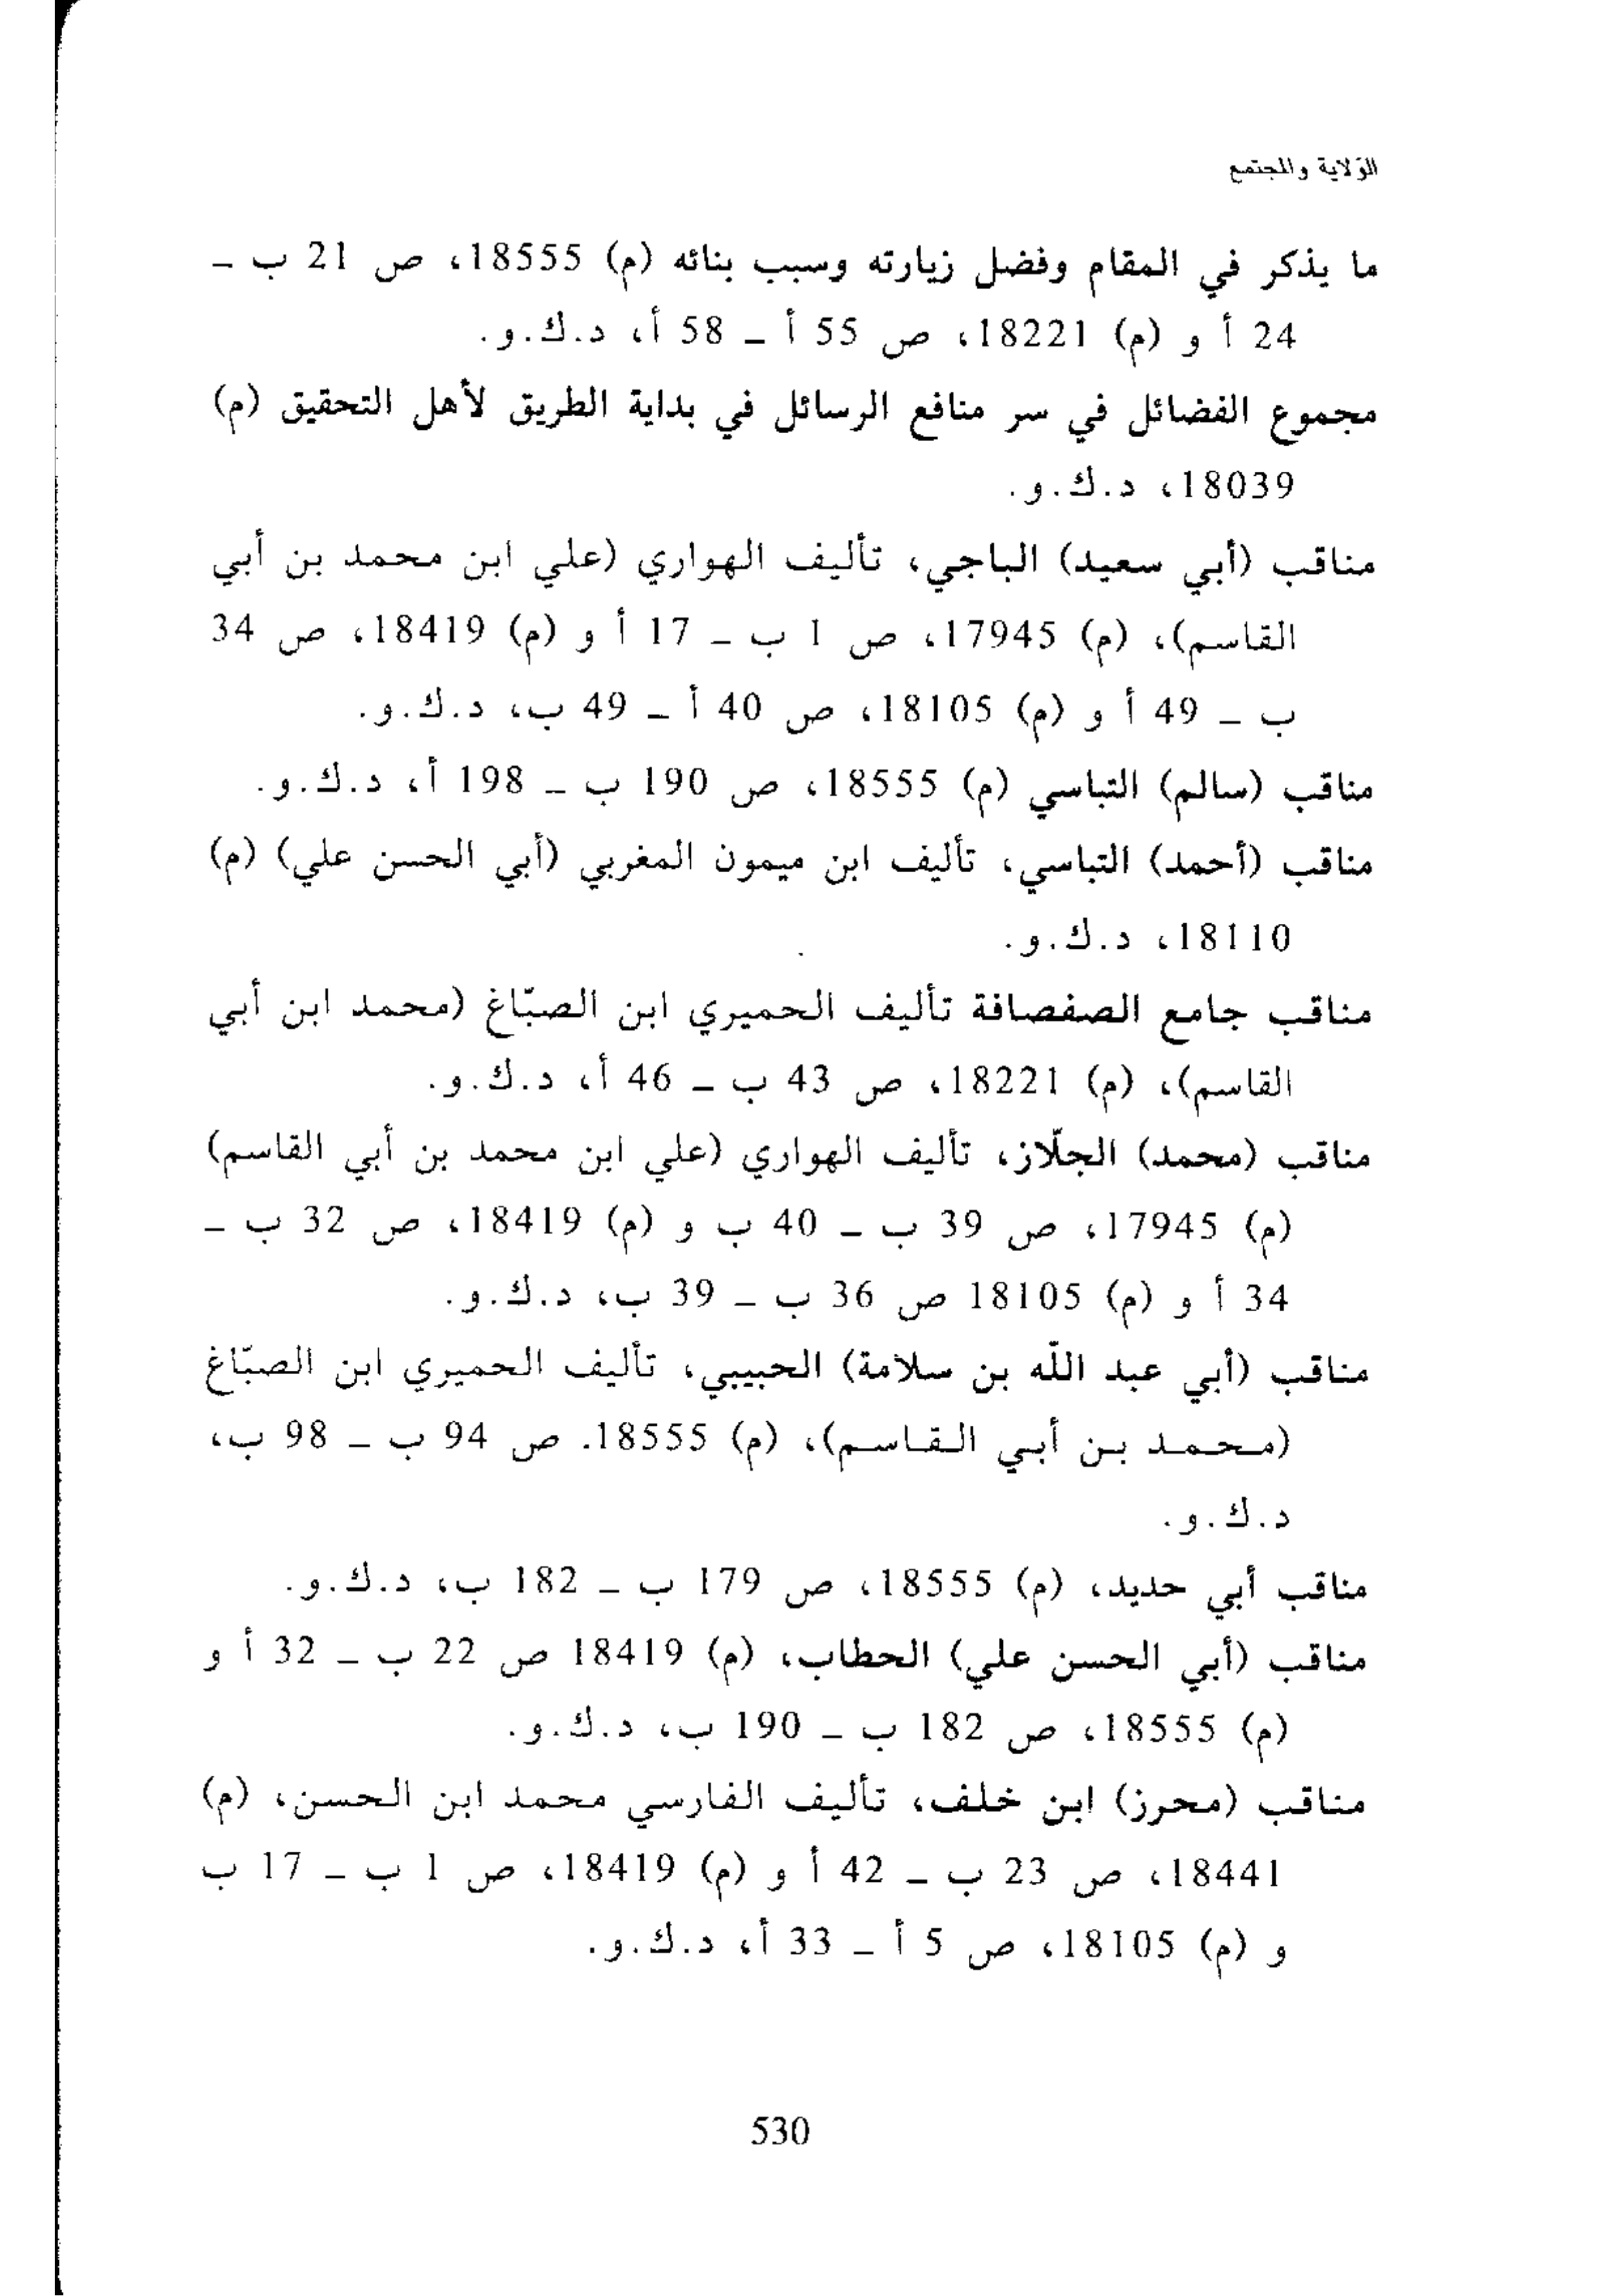 الوَلاية والمجتمع
ما يذكر في المقام وفضل زيارته وسبب بنائه (م) 18555، ص 21 ب –
24 أ و (م) 18221، ص 55 أ – 58 أ، د.ك.و.
مجموع الفضائل في سر منافع الرسائل في بداية الطريق لأهل التحقيق (م)
18039، د.ك.و.
مناقب (أبي سعيد) الباجي، تأليف الهواري (علي ابن محمد بن أبي
القاسم)، (م) 17945، ص 1 ب – 17 أ و (م) 18419، ص 34
ب – 49 أ و (م) 18105، ص 40 أ – 49 ب، د.ك.و.
مناقب (سالم) التباسي (م) 18555، ص 190 ب – 198 أ، د.ك.و.
مناقب (أحمد) التباسي، تأليف ابن ميمون المغربي (أبي الحسن علي) (م)
18110، د.ك.و.
مناقب جامع الصفصافة تأليف الحميري ابن الصبّاغ (محمد ابن أبي
القاسم)، (م) 18221، ص 43 ب – 46 أ، د.ك.و.
مناقب (محمد) الجلّاز، تأليف الهواري (علي ابن محمد بن أبي القاسم)
(م) 17945، ص 39 ب – 40 ب و (م) 18419، ص 32 ب –
34 أ و (م) 18105 ص 36 ب – 39 ب، د.ك.و.
مناقب (أبي عبد اللّه بن سلامة) الحبيبي، تأليف الحميري ابن الصبّاغ
(محمد بن أبي القاسم)، (م) 18555. ص 94 ب – 98 ب،
د.ك.و.
مناقب أبي حديد، (م) 18555، ص 179 ب – 182 ب، د.ك.و.
مناقب (أبي الحسن علي) الحطاب، (م) 18419 ص 22 ب – 32 أ و
(م) 18555، ص 182 ب – 190 ب، د.ك.و.
مناقب (محرز) ابن خلف، تأليف الفارسي محمد ابن الحسن، (م)
18441، ص 23 ب – 42 أ و (م) 18419، ص 1 ب – 17 ب
و (م) 18105، ص 5 أ – 33 أ، د.ك.و.
530